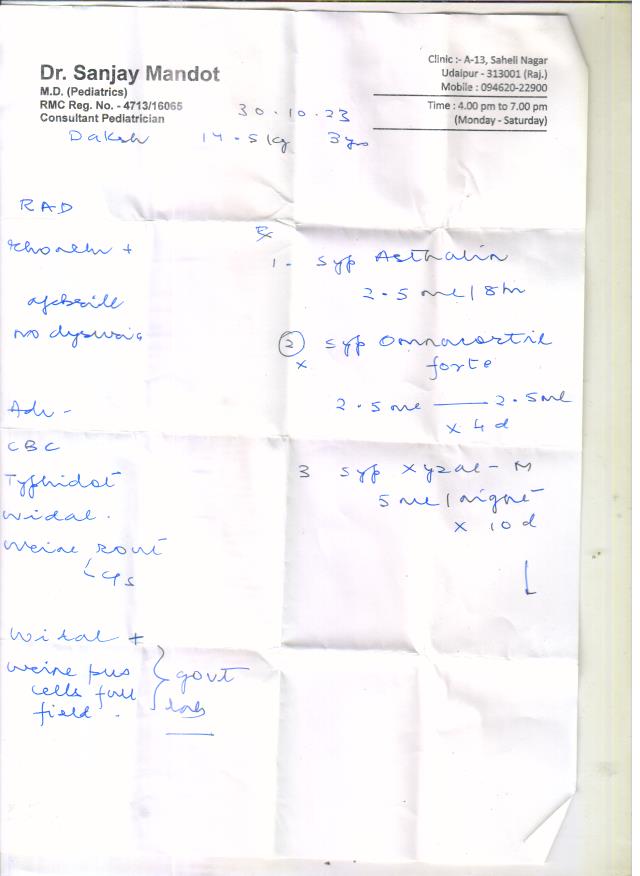 Dr. Sanjay Mandot
M.D. (Pediatrics)
RMC Reg. No. - 4713/16065
Consultant Pediatrician
Clinic :- A-13, Saheli Nagar
Udaipur - 313001 (Raj.)
Mobile : 094620-22900
Time : 4.00 pm to 7.00 pm
(Monday - Saturday)
30.10.23
Daksh 14.5kg 3ys
RAD
rhonchi +
afebrile
no dysuria
Adv -
CBC
Typhidot
widal.
urine rout
c/s
widal +
urine pus
cells full
field.
govt
lab
Rx
1- Syp Asthalin
2.5 ml / 8hr
② Syp Omnacortil
x forte
2.5 ml — 2.5ml
x 4 d
3 Syp Xyzal-M
5 ml / night
x 10 d